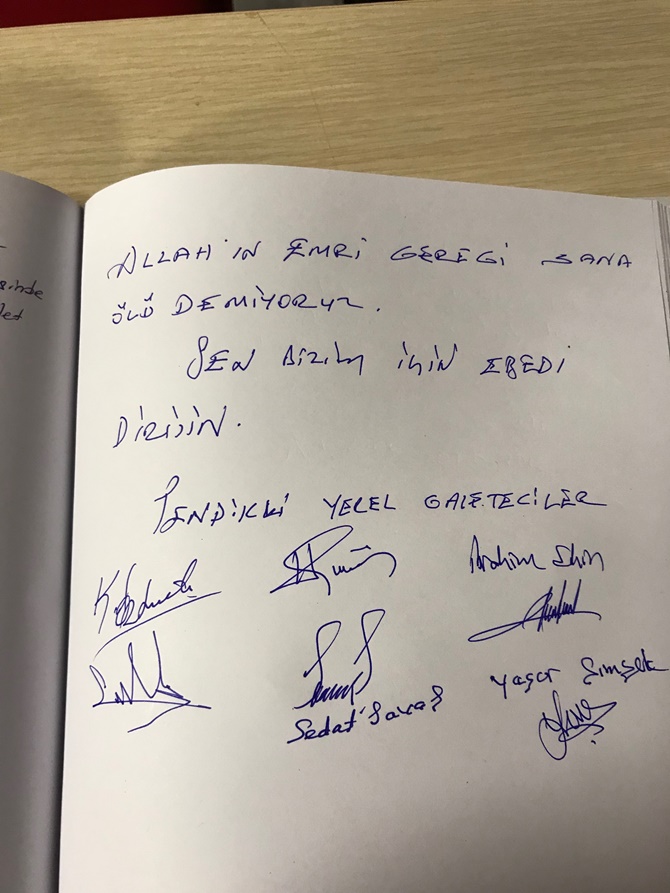 ALLAH'IN EMRİ GEREĞİ SANA
ÖLÜ DEMİYORUZ.
SEN BİZİM İÇİN EBEDİ
DİRİSİN.
PENDİKLİ YEREL GAZETECİLER
İbrahim
Yaşar Şimşek
Sedat Savaş